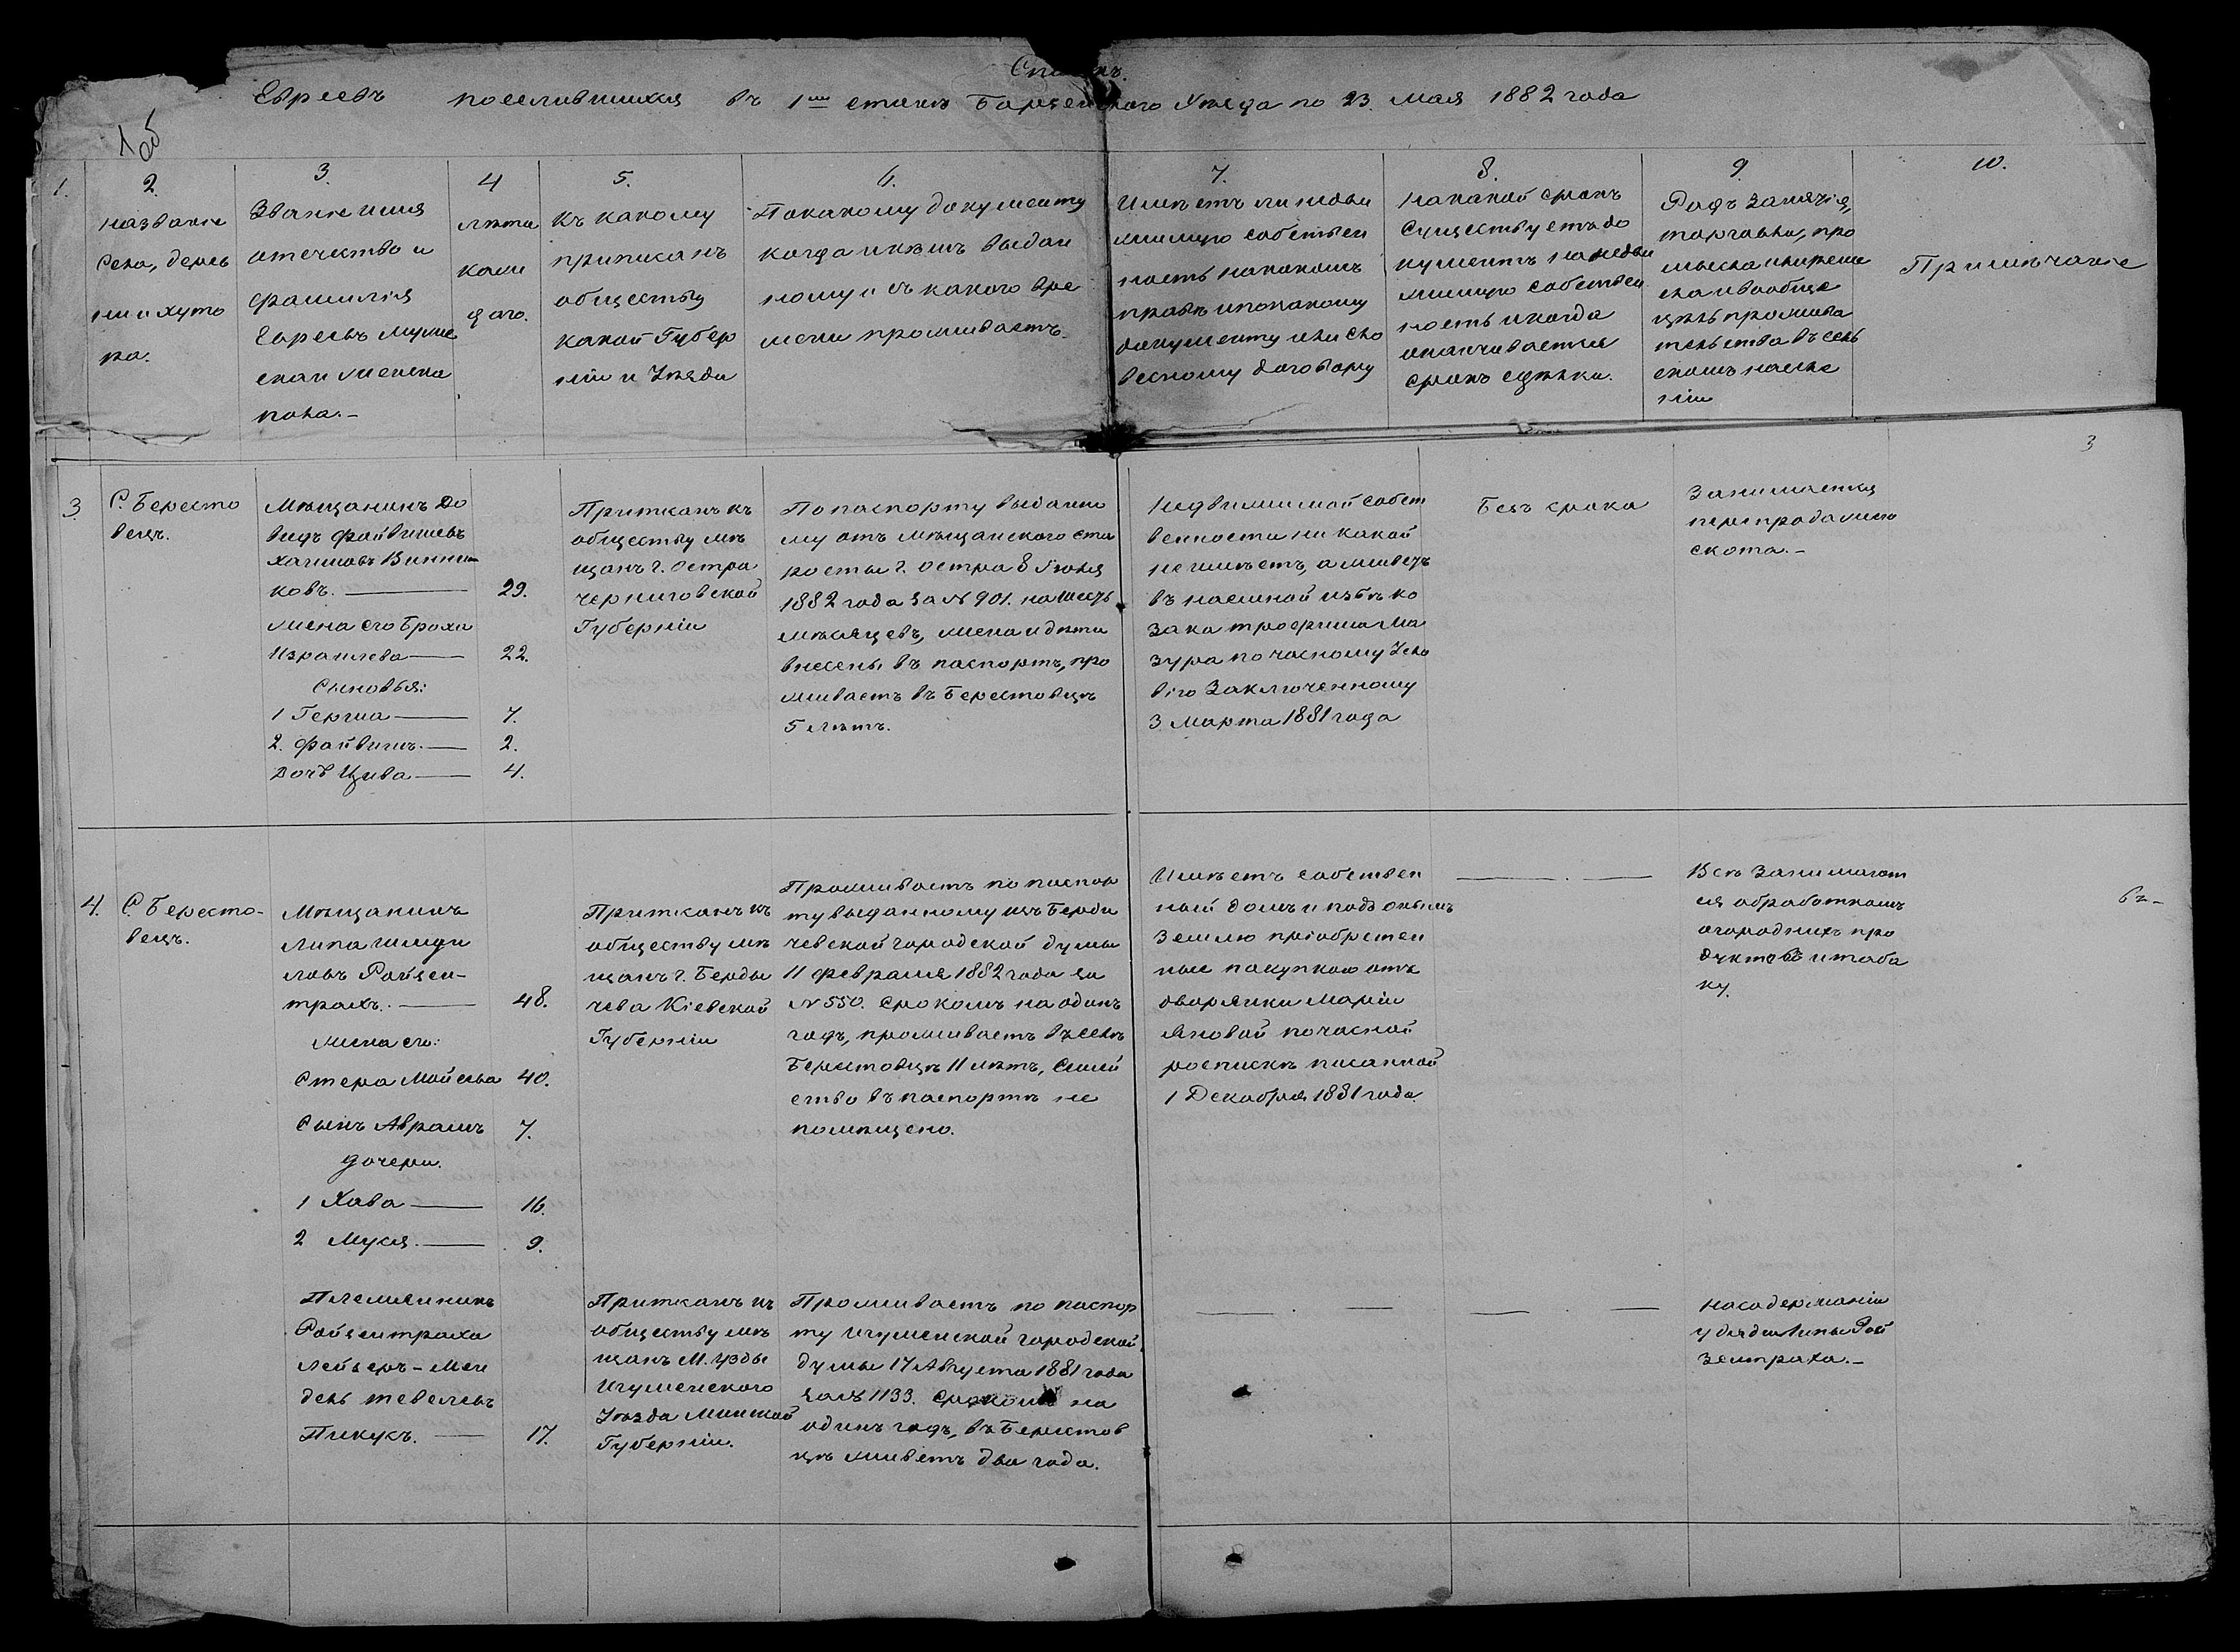 Списокъ
Евреевъ поселившихся въ 1мъ станѣ Борзенского Уѣзда по 23. мая 1882 года
1 об
1.
2.
Названіе
Села, дерев
ни и хуто
ра.
3.
Званіе имя
отечество и
фамилія
Евреевъ муже
скаго и женска
пола.-
4
лѣта
каж
даго.
5.
къ какому
приписанъ
обществу
какой Губер
ніи и Уѣзда
6.
По какому документу
когда и кѣмъ выдан
ному и съ какого вре
мени проживаетъ.
7.
Имѣетъ ли недви
жимую собствен
ность на какомъ
правѣ и по какому
документу или сло
весному договору
8.
На какой срокъ
Существуетъ до
кументъ на недви
жимую собствен
ность и когда
оканчивается
срокъ сдѣлки.
9
Родъ занятія,
торговли, про
мысла и ремес
ла и вообще
цѣль прожива
тельства въ сель
скомъ населе
ніи
10.
Примѣчаніе
3
3.
С. Бересто
вецъ.
Мѣщанинъ До
видъ Файвишевъ
Хаимовъ Винни
ковъ. — 29.
жена его Броха
Израилева — 22.
Сыновья:
1 Герша — 7.
2. Файвишъ. — 2.
Дочь Цива — 4.
Приписанъ къ
обществу мѣ
щанъ г. Остра
Черниговской
Губерніи
По паспорту выданно
му отъ мѣщанского ста
росты г. Остра 8 Іюня
1882 года за № 901. на шесть
мѣсяцевъ, жена и дѣти
внесены въ паспортъ, про
живаетъ въ Берестовцѣ
5 лѣтъ.
Недвижимой собст
венности ни какой
не имѣетъ, а живетъ
въ наемной избѣ ко
зака Трофима Ма
зура по часному Усло
вію Заключенному
3 Марта 1881 года
Безъ срока
Занимается
перепродажею
скота.-
4.
С. Бересто-
вецъ.
Мѣщанинъ
Липа Шмуи
ловъ Ройзен-
трахъ. — 48.
жена его:
Стера Мойсева 40.
Сынъ Аврамъ 7.
дочери.
1 Хава — 16.
2 Муся. — 9.
Приписанъ къ
обществу мѣ
щанъ г. Берды
чева Кіевской
Губерніи
Проживаетъ по паспор
ту выданному изъ Берди
чевской городской думы
11 февраля 1882 года за
№ 550. Срокомъ на одинъ
годъ, проживаетъ въ селѣ
Берестовцѣ 11 лѣтъ, Семей
ство въ паспортѣ не
помѣщено.
Имѣетъ собствен
ный домъ и подъ онымъ
Землю пріобретен
ные покупкою отъ
дворянки Маріи
Яновой по часной
роспискѣ писанной
1 Декабря 1881 года
— . —
Всѣ Занимают
ся обработкомъ
огороднихъ про
дуктовъ и таба
ку.
Племянникъ
Ройзентраха
Лейзеръ-Мен
дель Тевелевъ
Пикусъ. — 17.
Приписанъ къ
обществу мѣ
щанъ М. Узды
Игуменского
Уѣзда Минской
Губерніи.
Проживаетъ по паспор
ту Игуменской городской
думы 17 Августа 1881 года
за № 1133. Срокомъ на
одинъ годъ, въ Берестов
цѣ живетъ два года.
— . —
— . —
На содержаніи
у дяди Липы Рой
зентраха.-